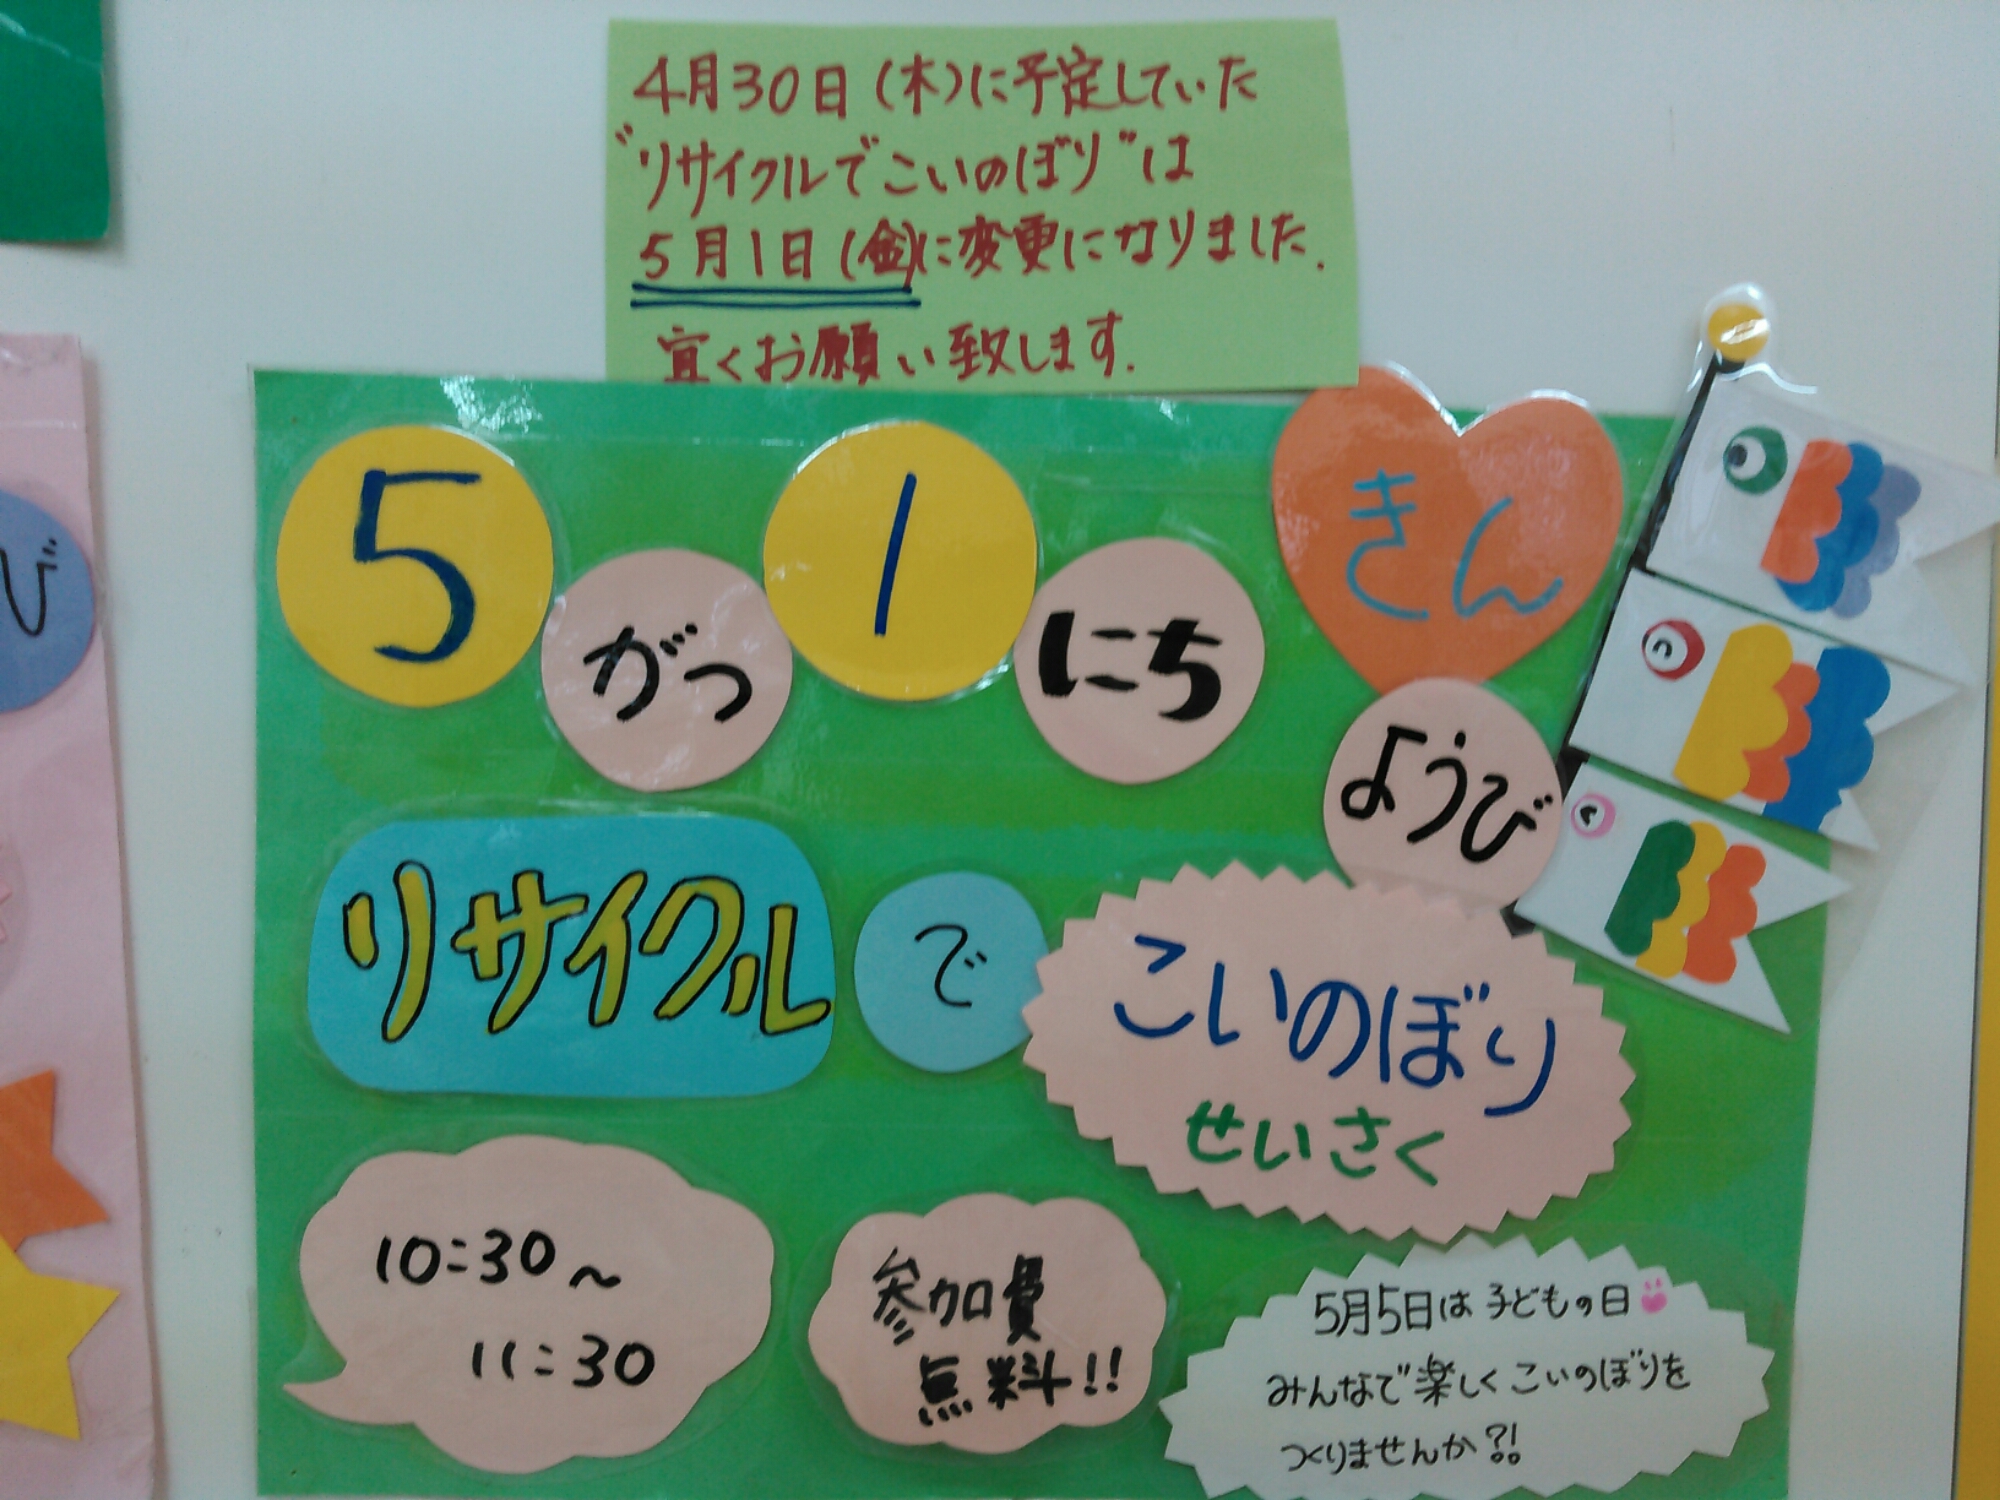 4月30日(木)に予定していた
"リサイクルでこいのぼり"は
5月1日(金)に変更になりました.
宜くお願い致します.
5がつ1にちきん
ようび
リサイクルでこいのぼり
せいさく
10:30~
11:30
参加費
無料!!
5月5日は子どもの日
みんなで楽しくこいのぼりを
つくりませんか?!
び